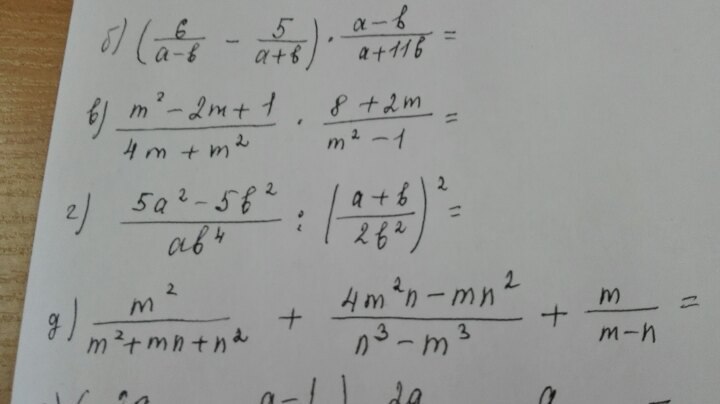 б) (6/(a-b) - 5/(a+b)) · (a-b)/(a+11b) =
в) (m² - 2m + 1)/(4m + m²) · (8 + 2m)/(m² - 1) =
г) (5a² - 5b²)/(ab⁴) : ((a+b)/(2b²))² =
д) m²/(m² + mn + n²) + (4m²n - mn²)/(n³ - m³) + m/(m-n) =